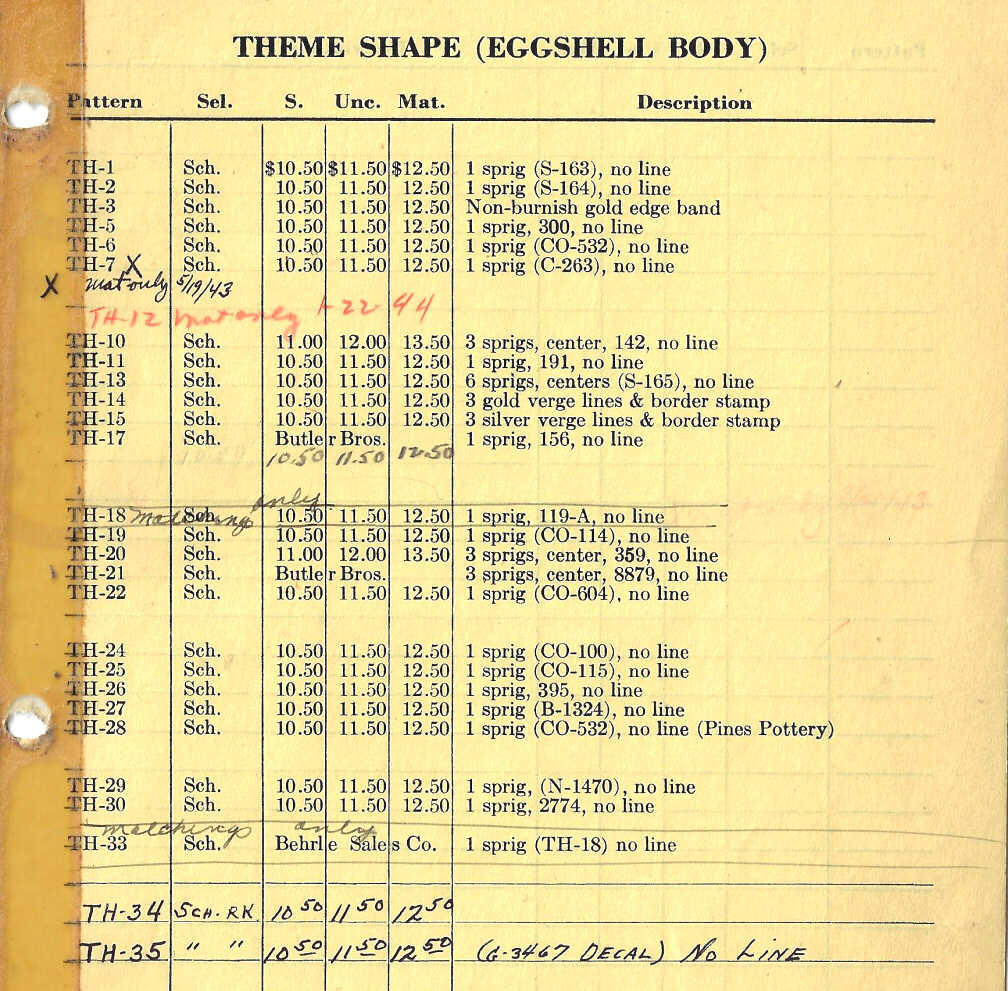 THEME SHAPE (EGGSHELL BODY)
Pattern Sel. S. Unc. Mat. Description
TH-1 Sch. $10.50 $11.50 $12.50 1 sprig (S-163), no line
TH-2 Sch. 10.50 11.50 12.50 1 sprig (S-164), no line
TH-3 Sch. 10.50 11.50 12.50 Non-burnish gold edge band
TH-5 Sch. 10.50 11.50 12.50 1 sprig, 300, no line
TH-6 Sch. 10.50 11.50 12.50 1 sprig (CO-532), no line
TH-7 X Sch. 10.50 11.50 12.50 1 sprig (C-263), no line
X mat only 5/19/43
TH-12 mat only 1-22-44
TH-10 Sch. 11.00 12.00 13.50 3 sprigs, center, 142, no line
TH-11 Sch. 10.50 11.50 12.50 1 sprig, 191, no line
TH-13 Sch. 10.50 11.50 12.50 6 sprigs, centers (S-165), no line
TH-14 Sch. 10.50 11.50 12.50 3 gold verge lines & border stamp
TH-15 Sch. 10.50 11.50 12.50 3 silver verge lines & border stamp
TH-17 Sch. Butler Bros. 1 sprig, 156, no line
10.50 11.50 12.50
only
TH-18 matchings Sch. 10.50 11.50 12.50 1 sprig, 119-A, no line
TH-19 Sch. 10.50 11.50 12.50 1 sprig (CO-114), no line
TH-20 Sch. 11.00 12.00 13.50 3 sprigs, center, 359, no line
TH-21 Sch. Butler Bros. 3 sprigs, center, 8879, no line
TH-22 Sch. 10.50 11.50 12.50 1 sprig (CO-604), no line
TH-24 Sch. 10.50 11.50 12.50 1 sprig (CO-100), no line
TH-25 Sch. 10.50 11.50 12.50 1 sprig (CO-115), no line
TH-26 Sch. 10.50 11.50 12.50 1 sprig, 395, no line
TH-27 Sch. 10.50 11.50 12.50 1 sprig (B-1324), no line
TH-28 Sch. 10.50 11.50 12.50 1 sprig (CO-532), no line (Pines Pottery)
TH-29 Sch. 10.50 11.50 12.50 1 sprig, (N-1470), no line
TH-30 Sch. 10.50 11.50 12.50 1 sprig, 2774, no line
matchings only
TH-33 Sch. Behrle Sales Co. 1 sprig (TH-18) no line
TH-34 SCH. RK 10 50 11 50 12 50
TH-35 " " 10 50 11 50 12 50 (G-3467 DECAL) NO LINE